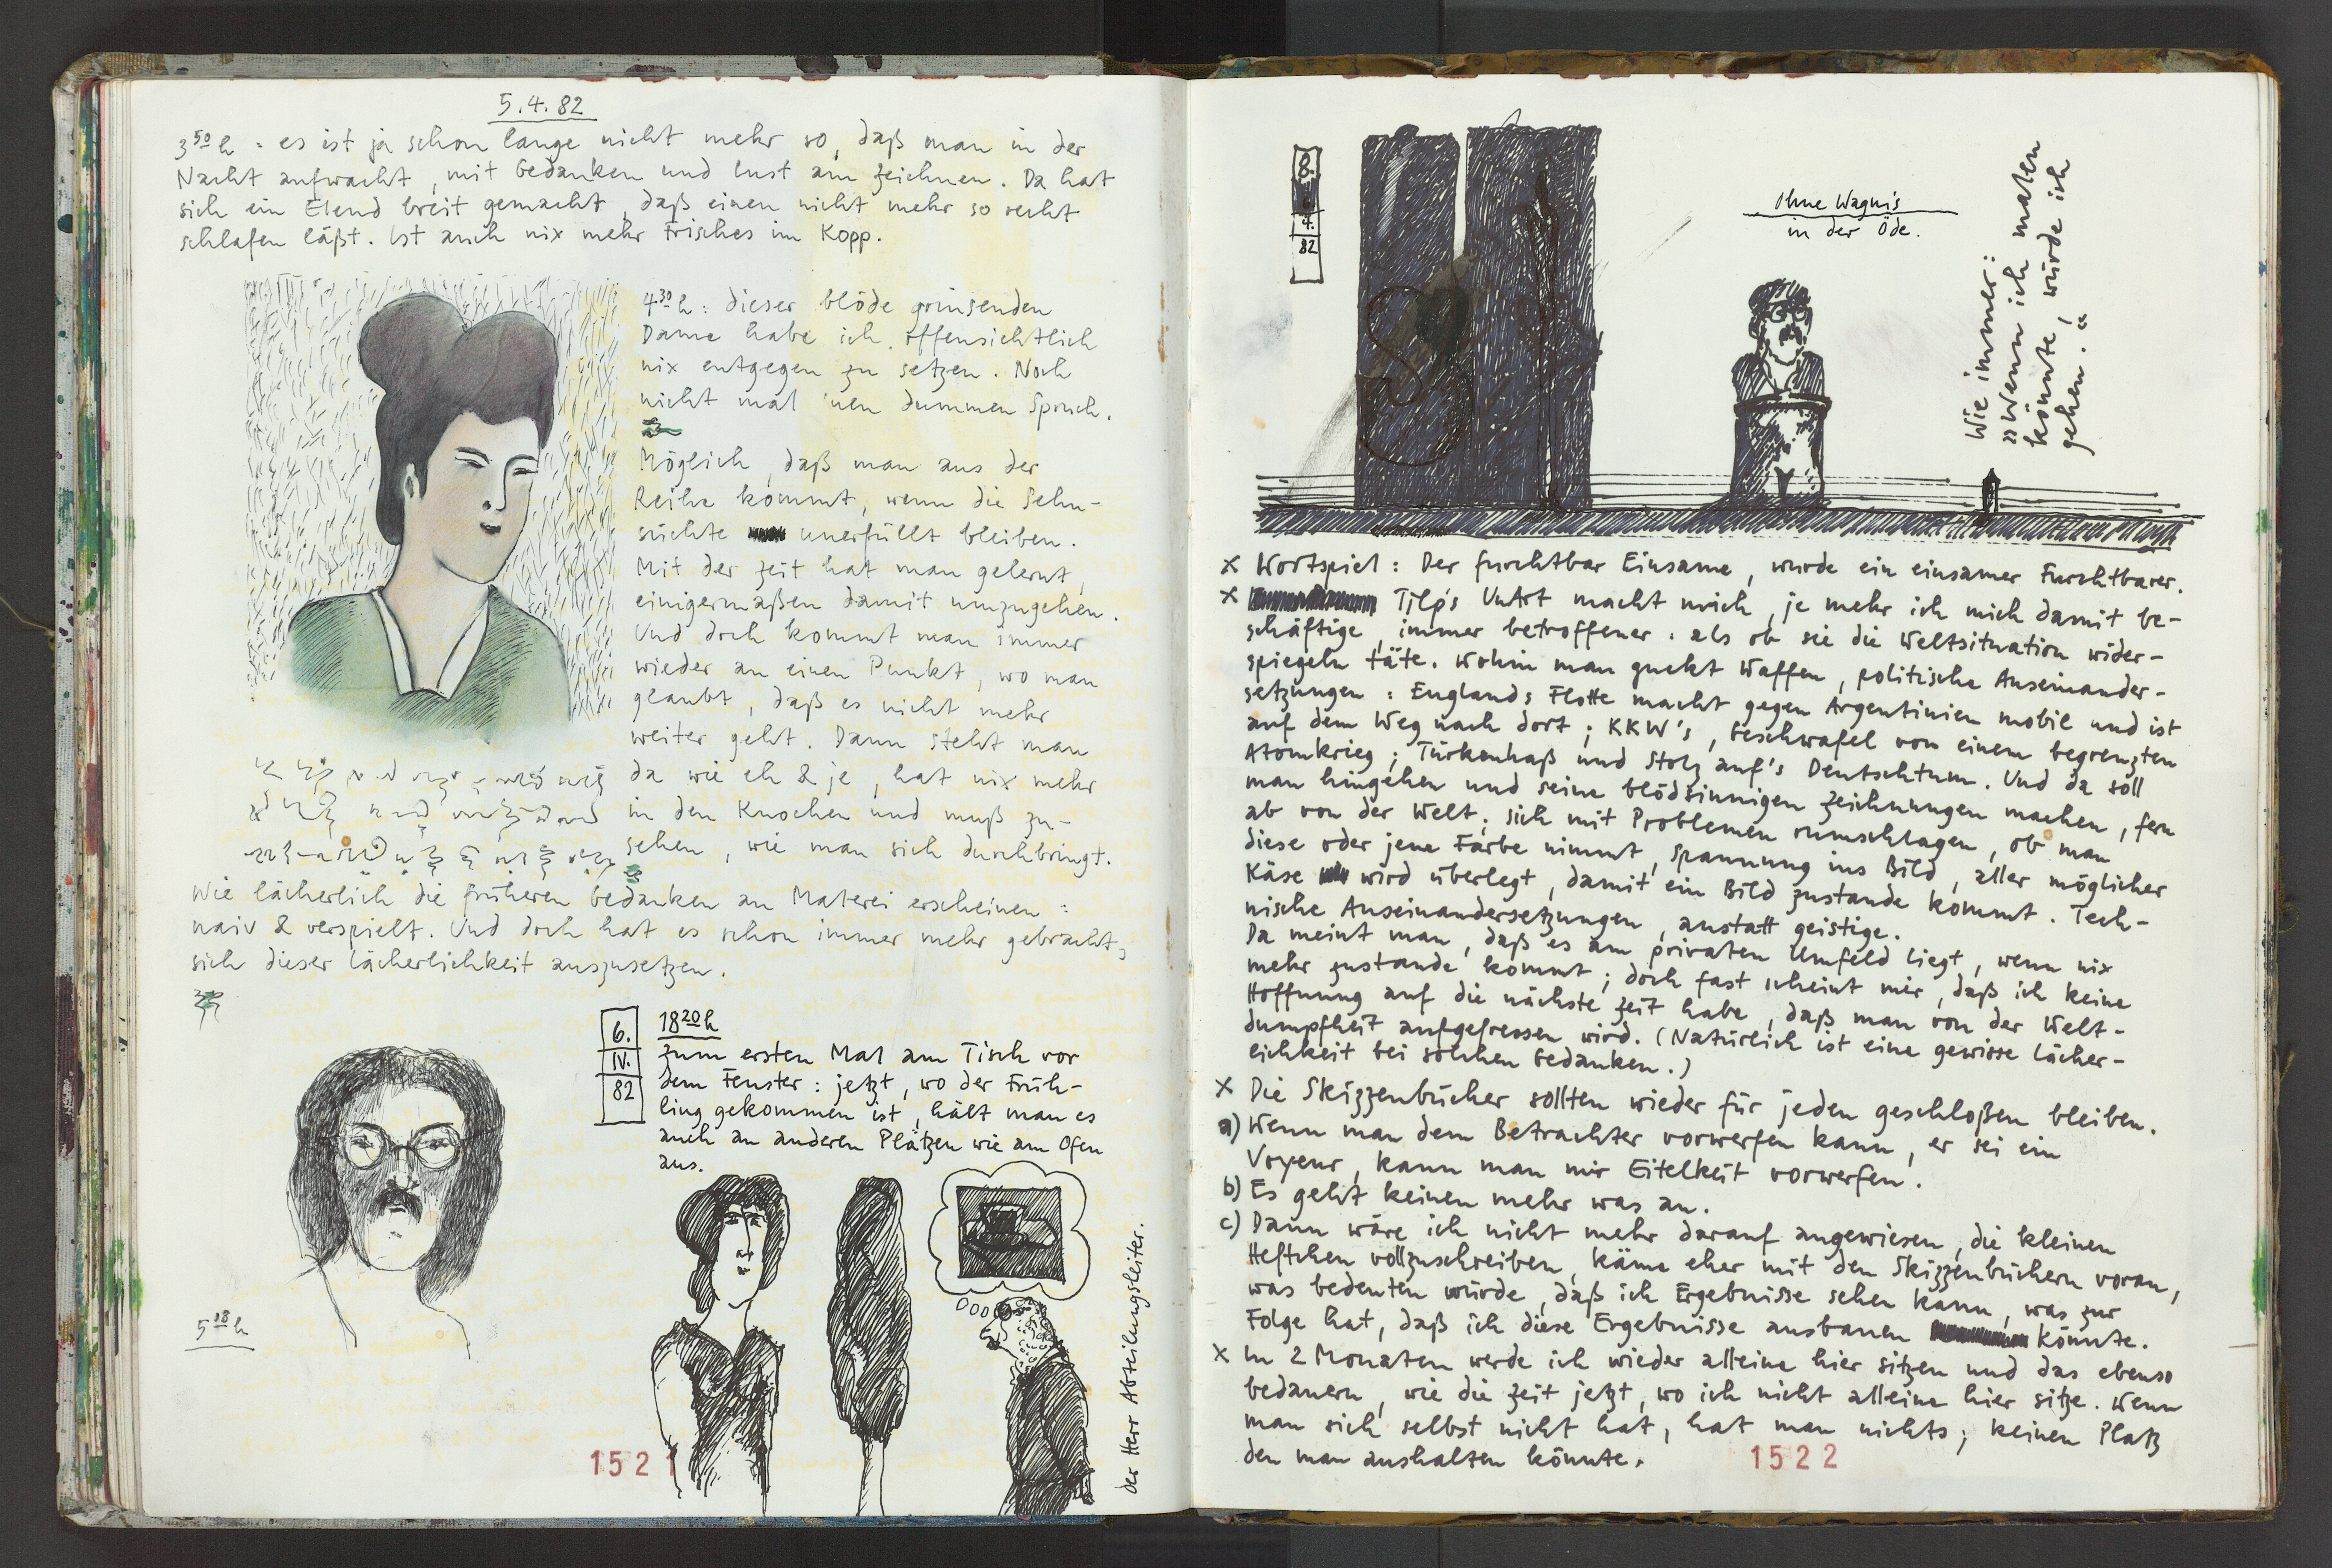 5.4.82
3⁵⁰h : es ist ja schon lange nicht mehr so, daß man in der
Nacht aufwacht, mit Gedanken und Lust am Zeichnen. Da hat
sich ein Elend breit gemacht, daß einen nicht mehr so recht
schlafen läßt. Ist auch nix mehr Frisches im Kopp.
4³⁰h : dieser blöde grinsenden
Dame habe ich offensichtlich
nix entgegen zu setzen. Noch
nicht mal 'nen dummen Spruch.
Möglich, daß man aus der
Reihe kommt, wenn die Sehn-
süchte unerfüllt bleiben.
Mit der Zeit hat man gelernt,
einigermaßen damit umzugehen.
Und doch kommt man immer
wieder an einen Punkt, wo man
glaubt, daß es nicht mehr
weiter geht. Dann steht man
da wie eh & je, hat nix mehr
in den Knochen und muß zu-
sehen, wie man sich durchbringt.
Wie lächerlich die früheren Gedanken an Malerei erscheinen :
naiv & verspielt. Und doch hat es schon immer mehr gebracht,
sich dieser Lächerlichkeit auszusetzen.
5¹⁸h
6.
IV.
82
18²⁰h
Zum ersten Mal am Tisch vor
dem Fenster : jetzt, wo der Früh-
ling gekommen ist, hält man es
auch an anderen Plätzen wie am Ofen
aus.
der Herr Abteilungsleiter.
1521
8.
4.
82
Ohne Wagnis
in der Öde.
Wie immer :
»Wenn ich malen
könnte, würde ich
gehen.«
x Wortspiel : Der furchtbar Einsame, wurde ein einsamer Furchtbarer.
x Tilp's UnArt macht mich, je mehr ich mich damit be-
schäftige, immer betroffener : als ob sie die Weltsituation wider-
spiegeln täte. Wohin man guckt Waffen, politische Auseinander-
setzungen : Englands Flotte macht gegen Argentinien mobil und ist
auf dem Weg nach dort ; KKW's, Geschwafel von einem begrenzten
Atomkrieg ; Türkenhaß und Stolz auf's Deutschtum. Und da soll
man hingehen und seine blödsinnigen Zeichnungen machen, fern
ab von der Welt ; sich mit Problemen rumschlagen, ob man
diese oder jene Farbe nimmt, Spannung ins Bild, aller möglicher
Käse wird überlegt, damit ein Bild zustande kommt. Tech-
nische Auseinandersetzungen, anstatt geistige.
Da meint man, daß es am privaten Umfeld liegt, wenn nix
mehr zustande kommt ; doch fast scheint mir, daß ich keine
Hoffnung auf die nächste Zeit habe, daß man von der Welt-
dumpfheit aufgefressen wird. (Natürlich ist eine gewisse Lächer-
lichkeit bei solchen Gedanken.)
x Die Skizzenbücher sollten wieder für jeden geschloßen bleiben.
a) Wenn man dem Betrachter vorwerfen kann, er sei ein
Voyeur, kann man mir Eitelkeit vorwerfen.
b) Es geht keinen mehr was an.
c) Dann wäre ich nicht mehr darauf angewiesen, die kleinen
Heftchen vollzuschreiben, käme eher mit den Skizzenbüchern voran,
was bedeuten würde, daß ich Ergebnisse sehen kann, was zur
Folge hat, daß ich diese Ergebnisse ausbauen könnte.
x In 2 Monaten werde ich wieder alleine hier sitzen und das ebenso
bedauern, wie die Zeit jetzt, wo ich nicht alleine hier sitze. Wenn
man sich selbst nicht hat, hat man nichts ; keinen Platz
den man aushalten könnte.
1522